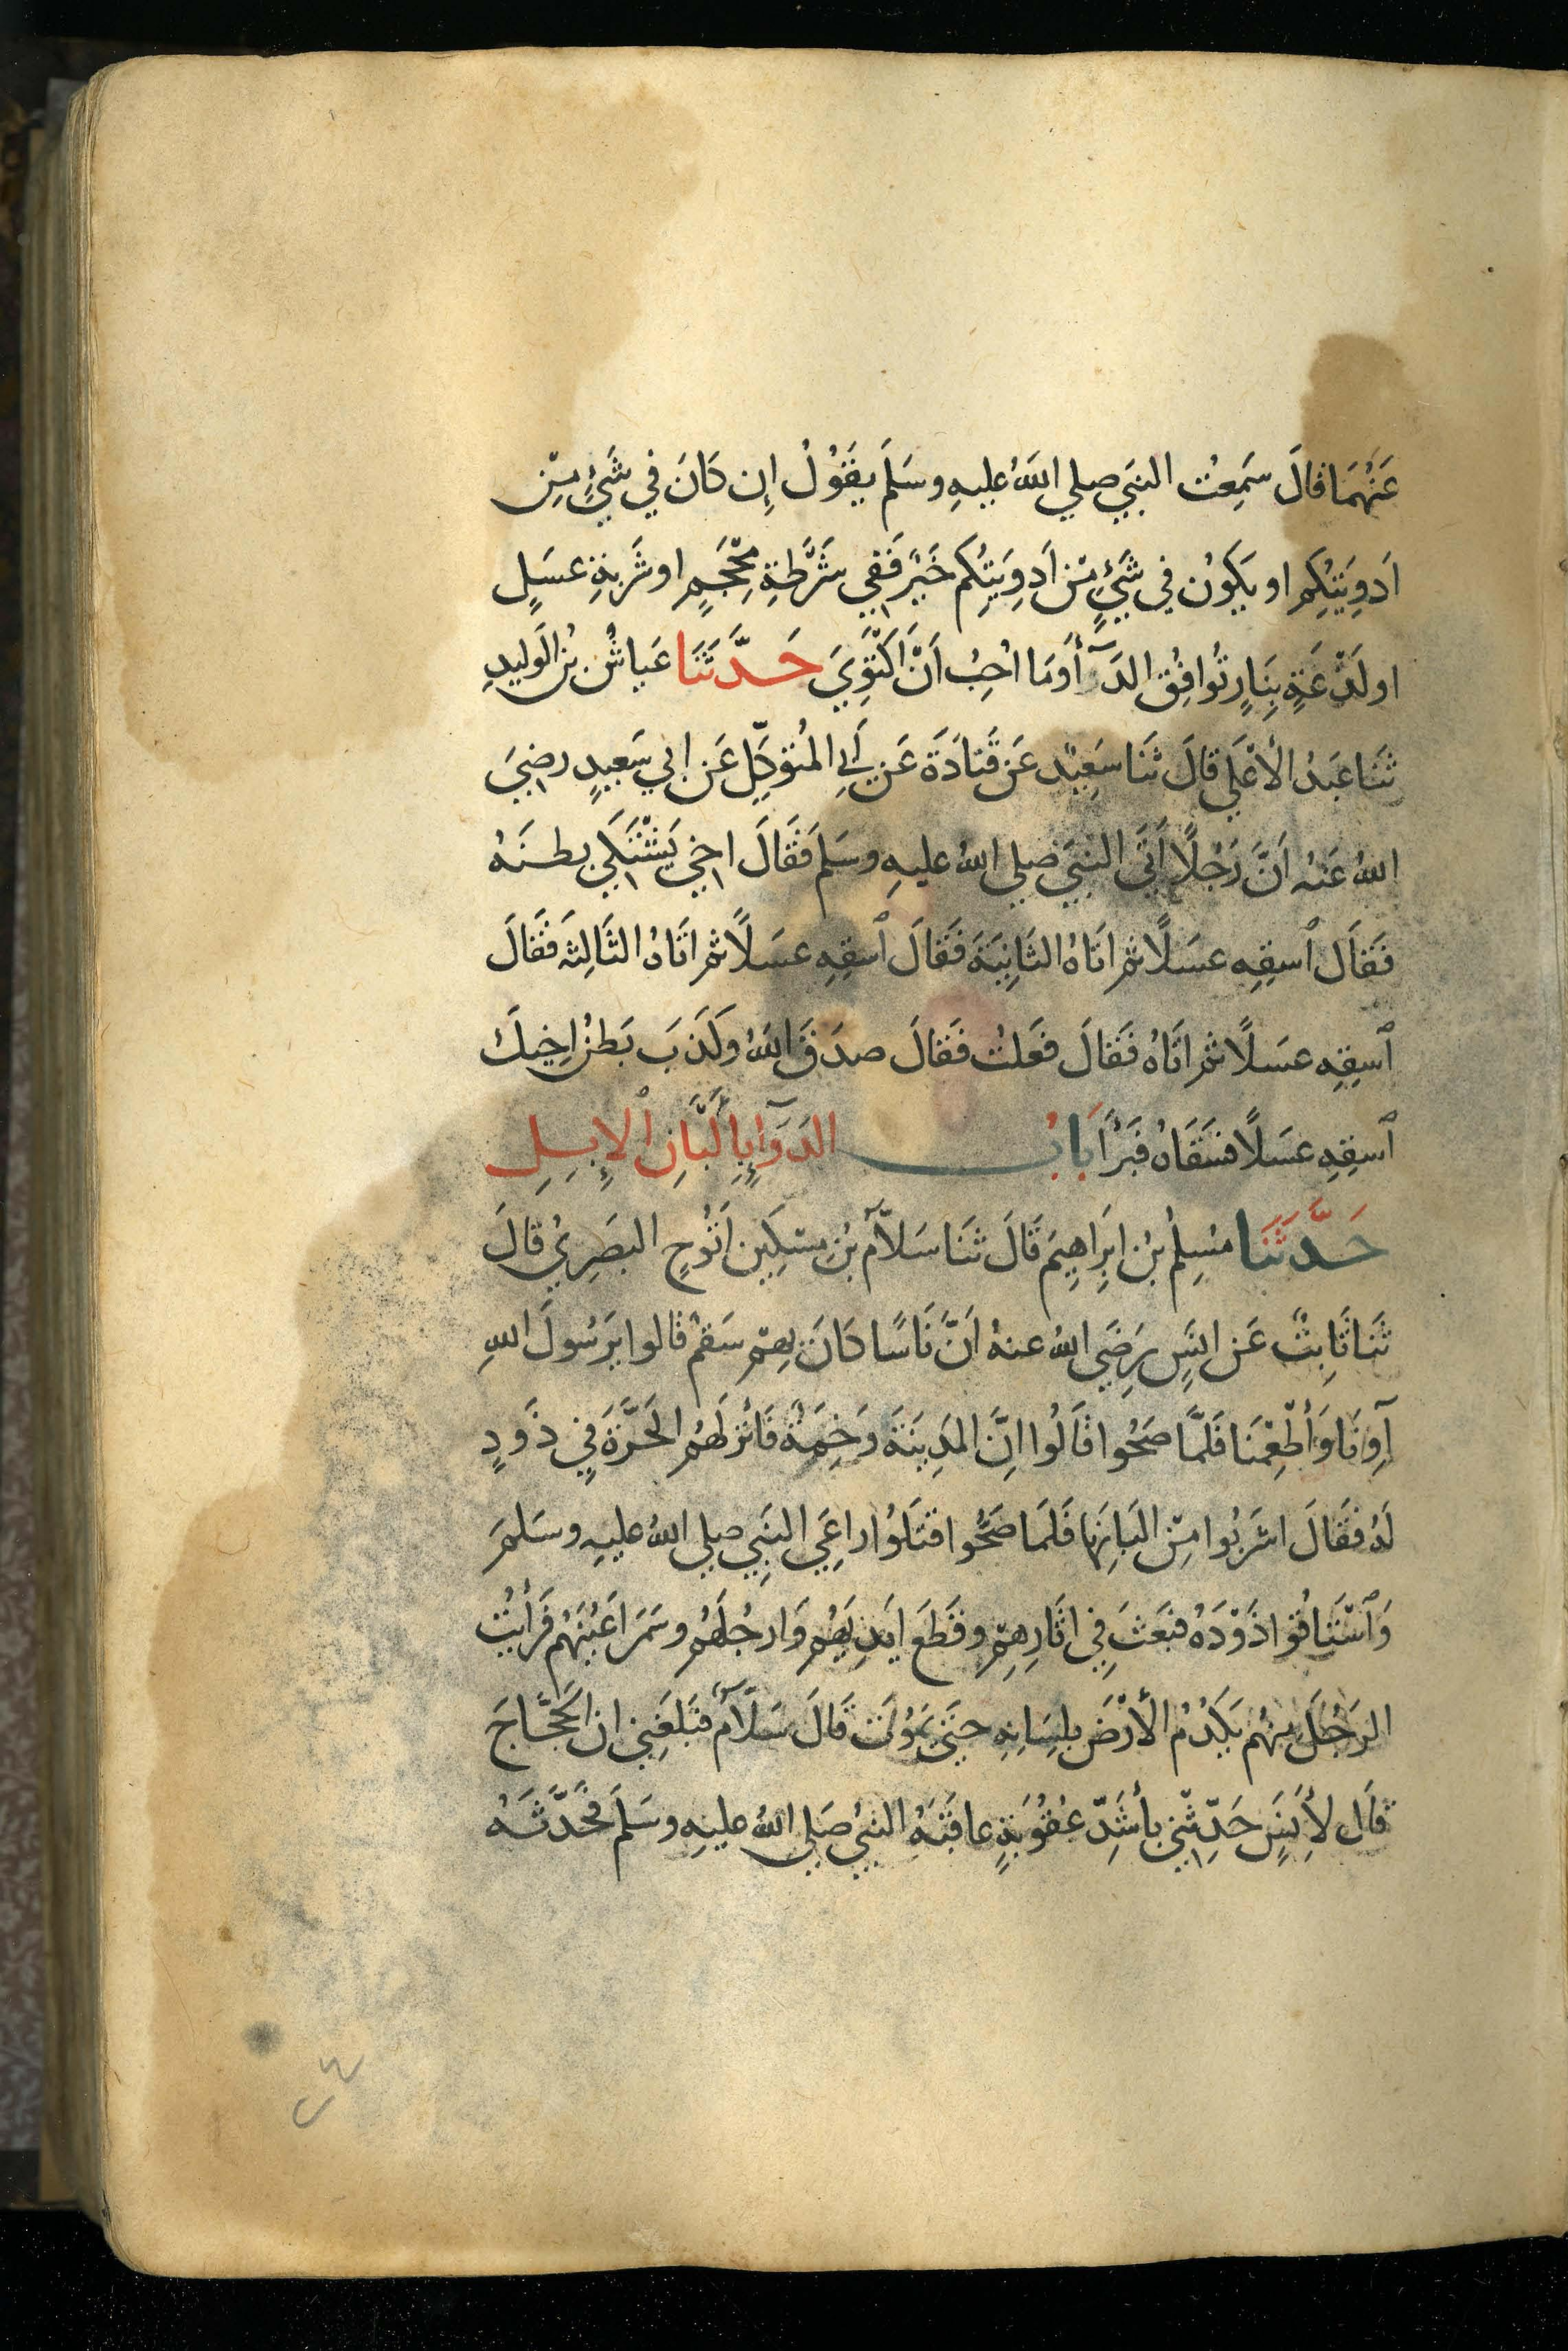 عَنْهُمَا قَالَ سَمِعْتُ النَبَيَ صلي اللهُ عليهِ وسَلَمَ يقَوُلُ اِن كَانَ في شَيْءٍ مِّن
اَدوِيَتِكِمُ او يَكوُن في شَيْءٍ مّن اَدوِيَتِكُم خَيْرٌ فَفِي شَرْطَةِ مِحْجَمٍ او شَربةِ عسَلٍ
او لَذْعَةٍ بِنَارٍ تُوَافِقُ الدَآءَ وَمَا اُحِبُ اَنْ اَكْتَوِيَ حَدَّثَنَا عَياشُ بنُ الَوليدِ
ثنَا عَبَدُ الأعْلَي قالَ ثنَا سَعِيْد عَن قَتَادَةَ عَن اَبِي المُتوَكِّلِ عَن ابي سَعيدٍ رضيَ
اللهُ عَنهُ اَنَّ رَجُلًا اَتَى النبَيَ صلي اللهُ عليهِ وسَلَمَ فَقَالَ اخي يَشْتَكي بطنَهُ
فَقَالَ ٱسقِهِ عسَلًا ثم اتَاهُ الثَانِيَةَ فَقَالَ ٱسقِهِ عسَلًا ثم اتَاهُ الثَالِثَه فَقَالَ
ٱسقِهِ عسَلًا ثم اتَاهُ فَقَالَ فعَلتُ فَقَالَ صدَقَ اللهُ وكَذبَ بَطنُ اخِيكَ
ٱسقِهِ عسَلًا فسَقَاهُ فَبَرَأَ بَابُ الدَوَآءِ بِاَلْبَانِ الاِبِلِ
حَدَّثنَا مسُلِمُ بنُ ابِرَاهِيمَ قَالَ ثنَا سَلاَّمُ بنُ مِسْكِين اَبُو نُوحٍ البصَرِيُ قالَ
ثنَا ثَابِتٌ عَن انَسٍ رَضَيَ اللهُ عنهُ اَنَّ نَاسًا كَانَ بِهِمْ سَقمٌ قَالوا يَرَسُولَ اللهِ
آوِنَا وَأَطْعِمْنَا فَلَمَّا صَحُوا قَالُوا اِنَّ المَدِينَةَ وَخِمَةٌ فَاَنْزلَهُمُ الحَرَّةَ في ذَودٍ
لَهُ فقَالَ اشرَبُوا مِنْ اَلبَانِهَا فَلَمَا صَحُّوا قتَلَوُا رَاعِيَ النبَيِ صلي اللهُ عليهِ وسَلمَ
وَٱسْتَاقُوا ذَوْدَهُ فبَعَثَ فِي اثَارِهِمْ وقَطَعَ ايَدِيَهُم وَارجُلَهُم وسَمَرَ اَعْيُنَهُم فَرَأَيْتُ
الرَجُلَ مِنهُم يَكدُمُ الأرْضَ بلِسَانِهِ حتَىَ يَمَوُتَ قَالَ سَلَّامٌ فبَلغَنِي انَ الحَجَّاجَ
قالَ لأَنَسٍ حَدِّثْنِي بأَشَدِّ عقُوُبَةٍ عاقَبَهُ النبيُ صَلي اللهُ عليهِ وسَلَمَ فَحَدَّثَهُ
٢٤